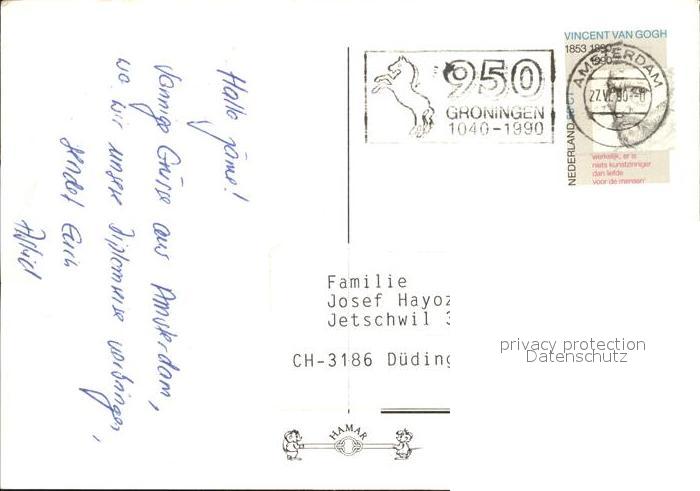 Hallo zäme!
Sonnige Grüsse aus Amsterdam,
wo wir unsere Diplomreise verbringen,
Euch
950
GRONINGEN
1040-1990
AMSTERDAM
27.VI.90
VINCENT VAN GOGH
1853 1890
1990
NEDERLAND
'werkelijk, er is
niets kunstzinniger
dan liefde
voor de mensen'
Familie
Josef Hayoz
Jetschwil 3
CH-3186 Düding
privacy protection
Datenschutz
HAMAR